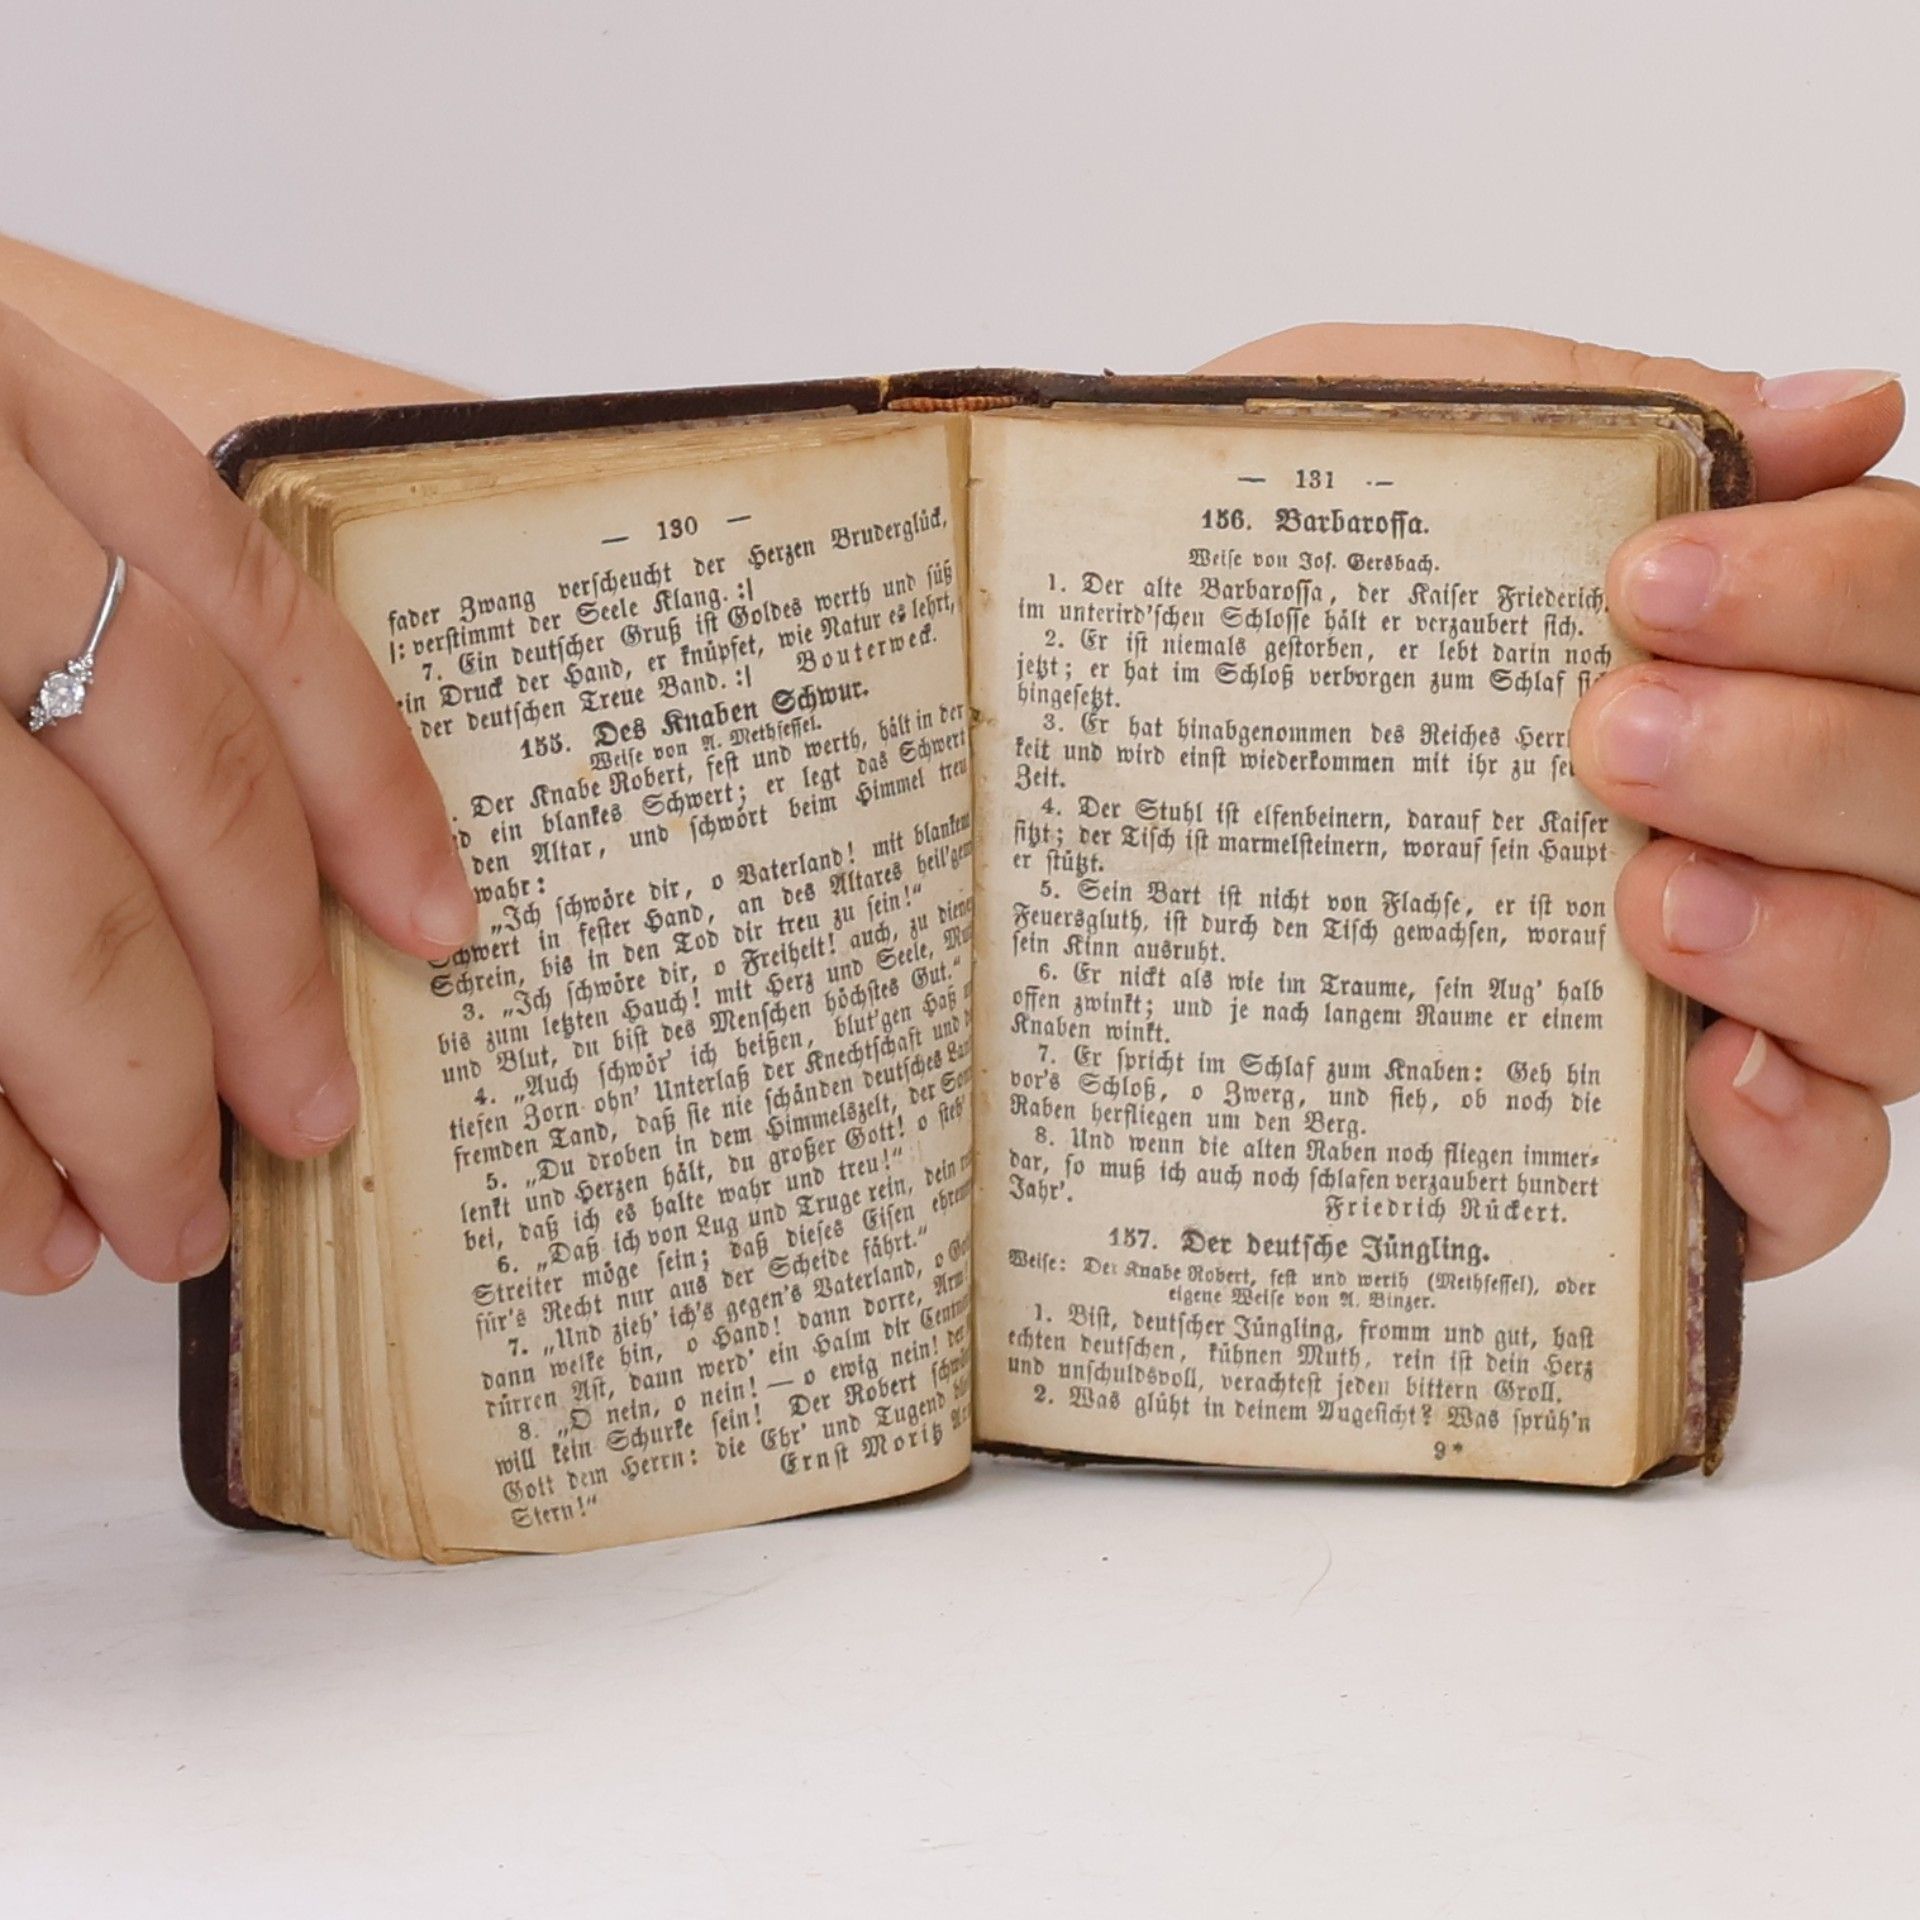 — 130 —
fader Zwang verscheucht der Herzen Bruderglück,
|: verstimmt der Seele Klang. :|
7. Ein deutscher Gruß ist Goldes werth und süß
ein Druck der Hand, er knüpfet, wie Natur es lehrt,
der deutschen Treue Band. :| Bouterweck.
155. Des Knaben Schwur.
Weise von A. Methfessel.
Der Knabe Robert, fest und werth, hält in der
ein blankes Schwert; er legt das Schwert
den Altar, und schwört beim Himmel treu
wahr:
„Ich schwöre dir, o Vaterland! mit blankem
Schwert in fester Hand, an des Altares heil'gem
Schrein, bis in den Tod dir treu zu sein!“
3. „Ich schwöre dir, o Freiheit! auch, zu dienen
bis zum letzten Hauch! mit Herz und Seele,
und Blut, du bist des Menschen höchstes Gut.“
4. „Auch schwör' ich heißen, blut'gen Haß
tiefen Zorn ohn' Unterlaß der Knechtschaft und
fremden Tand, daß sie nie schänden deutsches
5. „Du droben in dem Himmelszelt, der
lenkt und Herzen hält, du großer Gott! o steh'
bei, daß ich es halte wahr und treu!“
6. „Daß ich von Lug und Truge rein, dein
Streiter möge sein; daß dieses Eisen
für's Recht nur aus der Scheide fährt.“
7. „Und zieh' ich's gegen's Vaterland, o
dann welke hin, o Hand! dann dorre, Arm!
dürren Ast, dann werd' ein Halm dir
8. „O nein, o nein! — o ewig nein! der
will kein Schurke sein! Der Robert
Gott dem Herrn: die Ehr' und Tugend
Stern!“ Ernst Moritz
— 131 —
156. Barbarossa.
Weise von Jos. Gersbach.
1. Der alte Barbarossa, der Kaiser Friederich,
im unterird'schen Schlosse hält er verzaubert sich.
2. Er ist niemals gestorben, er lebt darin noch
jetzt; er hat im Schloß verborgen zum Schlaf sich
hingesetzt.
3. Er hat hinabgenommen des Reiches
keit und wird einst wiederkommen mit ihr zu
Zeit.
4. Der Stuhl ist elfenbeinern, darauf der Kaiser
sitzt; der Tisch ist marmelsteinern, worauf sein Haupt
er stützt.
5. Sein Bart ist nicht von Flachse, er ist von
Feuersgluth, ist durch den Tisch gewachsen, worauf
sein Kinn ausruht.
6. Er nickt als wie im Traume, sein Aug' halb
offen zwinkt; und je nach langem Raume er einem
Knaben winkt.
7. Er spricht im Schlaf zum Knaben: Geh hin
vor's Schloß, o Zwerg, und sieh, ob noch die
Raben herfliegen um den Berg.
8. Und wenn die alten Raben noch fliegen immer-
dar, so muß ich auch noch schlafen verzaubert hundert
Jahr'. Friedrich Rückert.
157. Der deutsche Jüngling.
Weise: Der Knabe Robert, fest und werth (Methfessel), oder
eigene Weise von A. Binzer.
1. Bist, deutscher Jüngling, fromm und gut, hast
echten deutschen, kühnen Muth, rein ist dein Herz
und unschuldsvoll, verachtest jeden bittern Groll.
2. Was glüht in deinem Augesicht? Was sprüh'n
9*